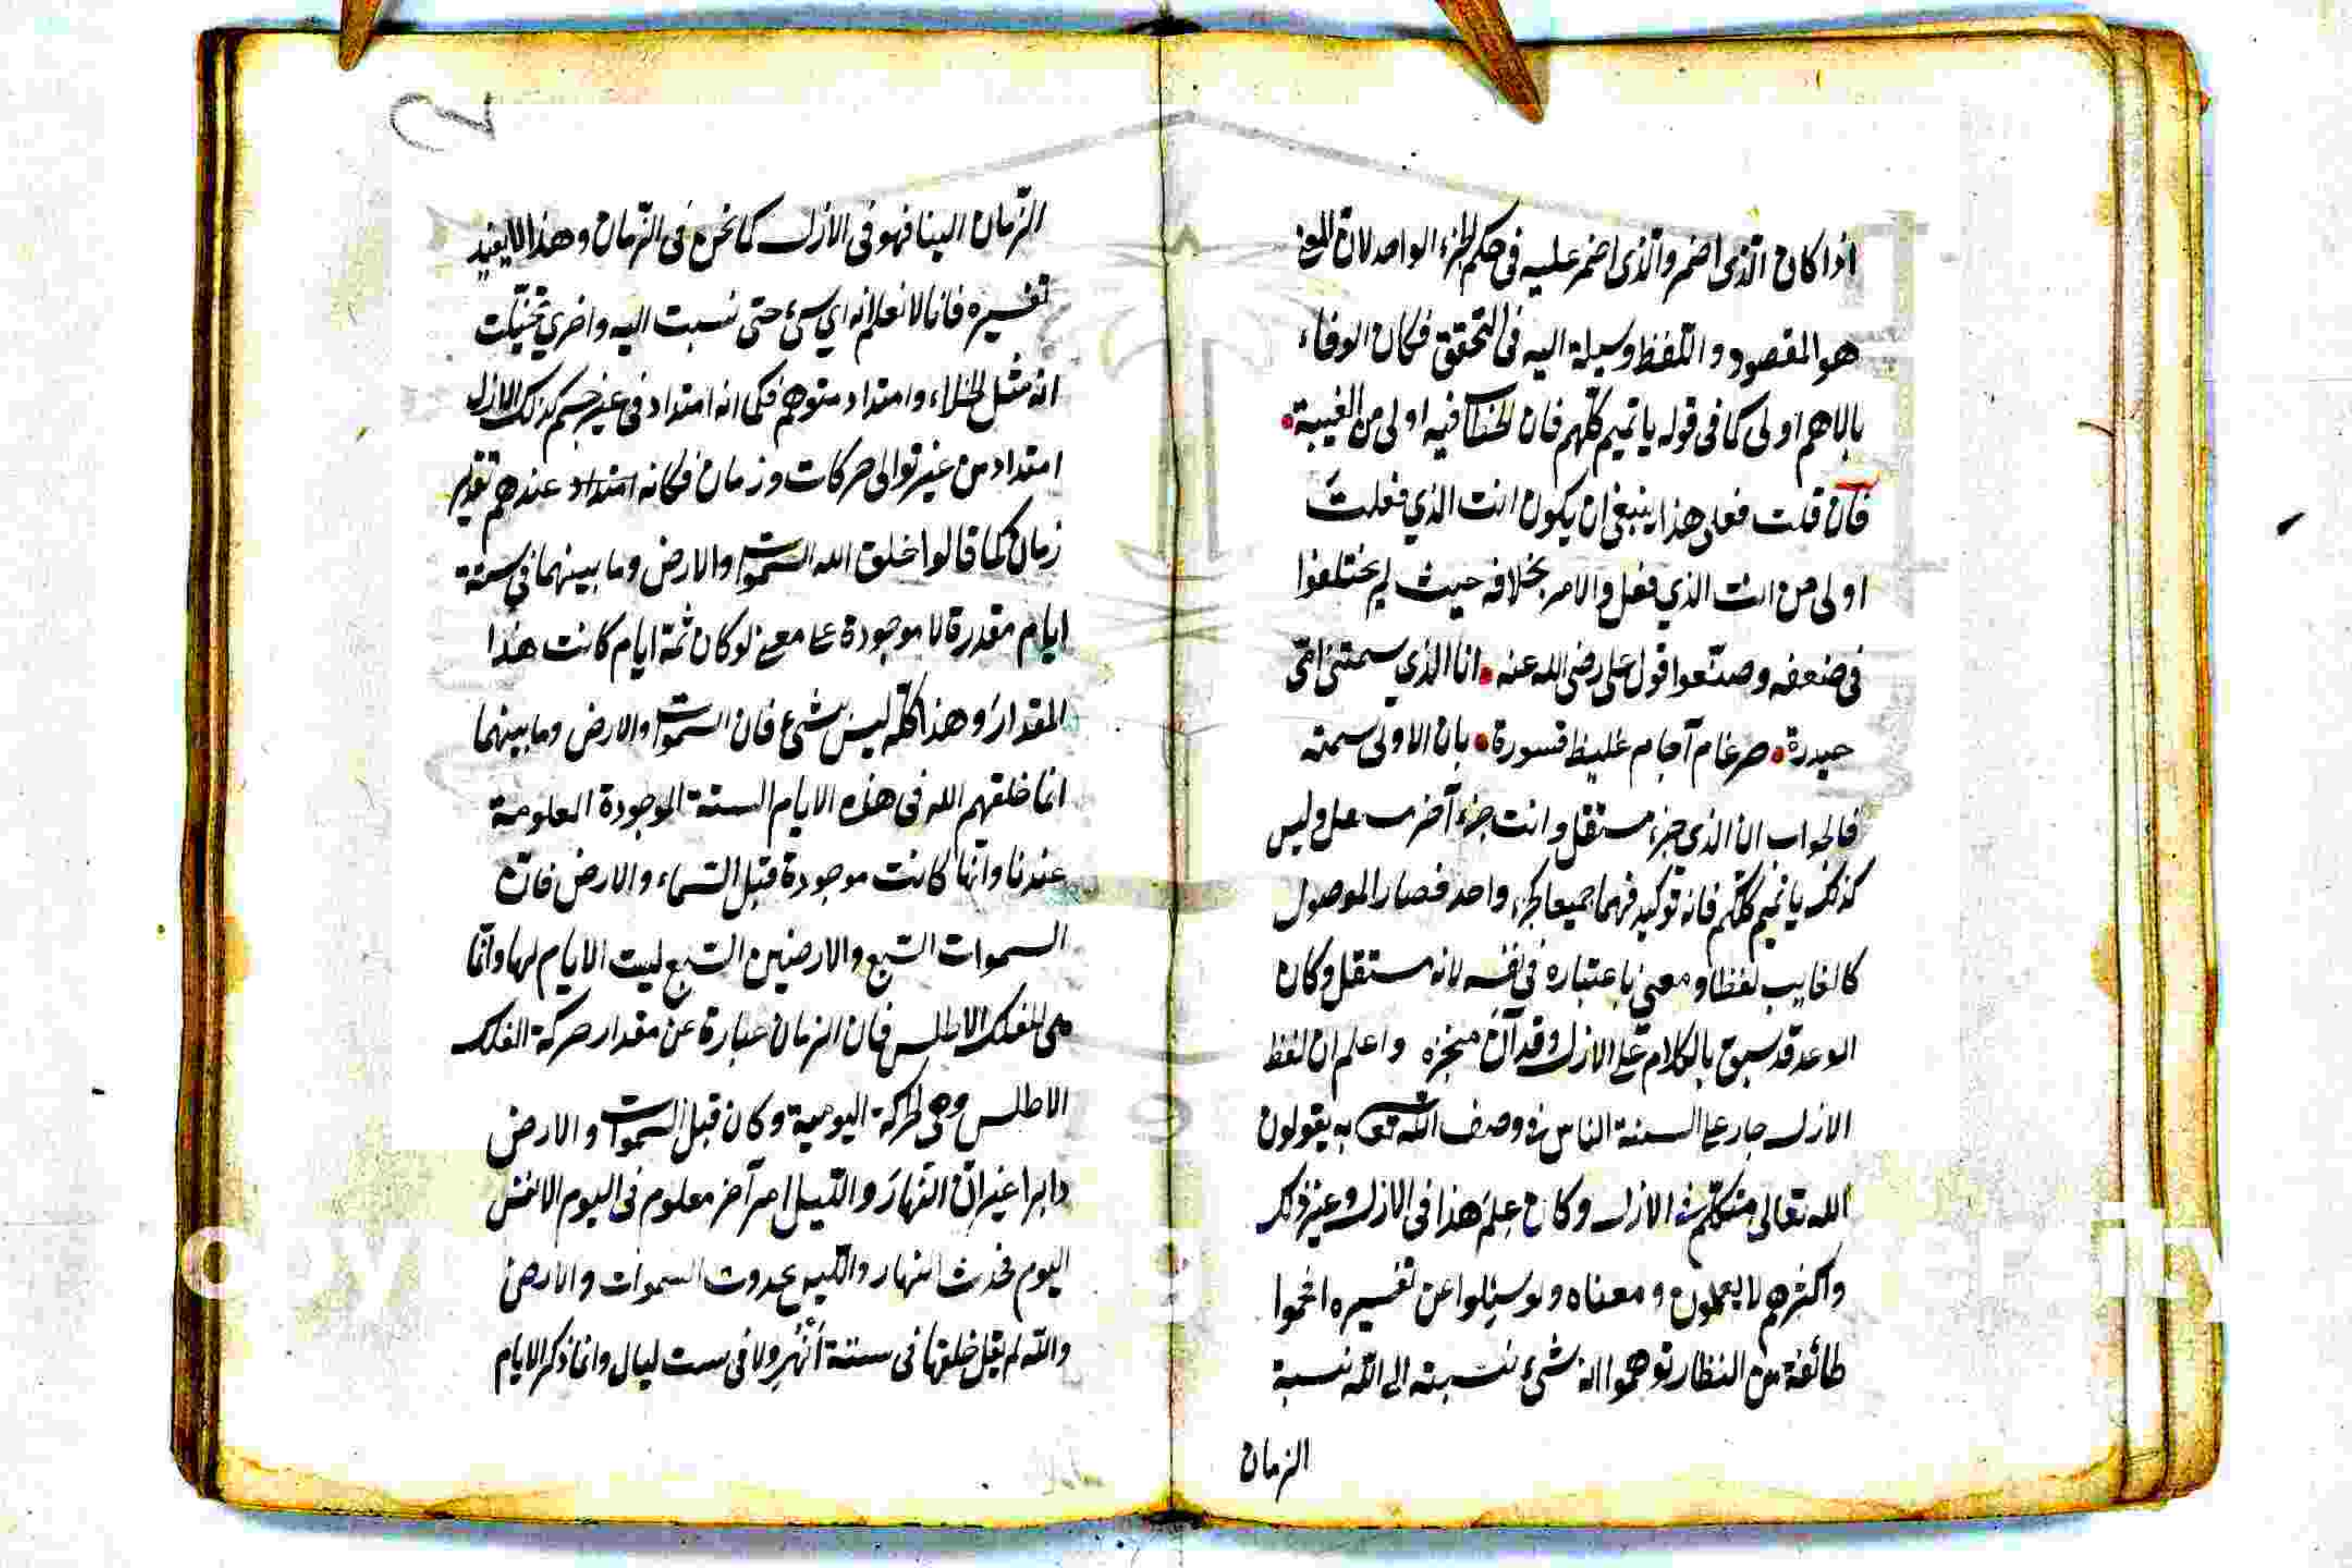 اذا كان الذى اضمر والذى اضمر عليه فى حكم الجزء الواحد لان المعنى
هو المقصود و اللفظ وسيلة اليه فى التحقق فكان الوفاء
بالاهم اولى كما فى قوله يا تميم كلهم فان الخطاب فيه اولى من الغيبة
فان قلت فعلى هذا ينبغى ان يكون انت الذي فعلت
اولى من انت الذي فعل والامر بخلافه حيث لم يختلفوا
فى ضعفه وصنّعوا قول على رضى الله عنه انا الذي سمتنى امّى
حيدرة ضرغام آجام غليظ قسورة بان الاولى سمته
فالجواب ان الذى جزء مستقل وانت جزء آخر وليس
كذلك يا تميم كلكم فانه توكيد فهما جميعا كجزء واحد فصار الموصول
كالغايب لفظا ومعنى باعتباره فى نفسه لانه مستقل وكان
الوعد قد سبق بالكلام على الازل وقد آن منجزه واعلم ان لفظ
الازل جار على السنة الناس فى وصف الله تعالى به يقولون
الله تعالى متكلم فى الازل وكان علم هذا فى الازل وغير ذلك
واكثرهم لا يعلمون معناه ولو سئلوا عن تفسيره افحموا
طائفة من النظار توهموا انه شىء نسبته الى الله نسبة
الزمان
الزمان الينا فهو فى الازل كما نحن فى الزمان وهذا لا يفيد
تفسيره فانا لا نعلم انه اي شىء حتى نسبت اليه واخري تخيّلت
انه مثل الخلاء وامتداد متوهم فكما انه امتداد فى غير جسم كذلك الازل
امتداد من غير توالى حركات وزمان فكانه امتداد عندهم تقدير
زمان كما قالوا خلق الله السموات والارض وما بينهما فى ستة
ايام مقدرة لا موجودة على معنى لو كان ثمة ايام كانت هذا
المقدار وهذا كله ليس بشىء فان السموات والارض وما بينهما
انما خلقهم الله فى هذه الايام الستة الموجودة المعلومة
عندنا وانها كانت موجودة قبل السماء والارض فان
السموات السبع والارضين السبع ليست الايام لها وانما
هى للفلك الاطلس فان الزمان عبارة عن مقدار حركة الفلك
الاطلس وهى الحركة اليومية وكان قبل السموات والارض
دايرا غير ان النهار والليل امر آخر معلوم فى اليوم لا نفس
اليوم فحدث النهار والليل بحدوث السموات والارض
والله لم يقل خلقها فى ستة أنهُرٍ ولا فى ست ليال وانما ذكر الايام